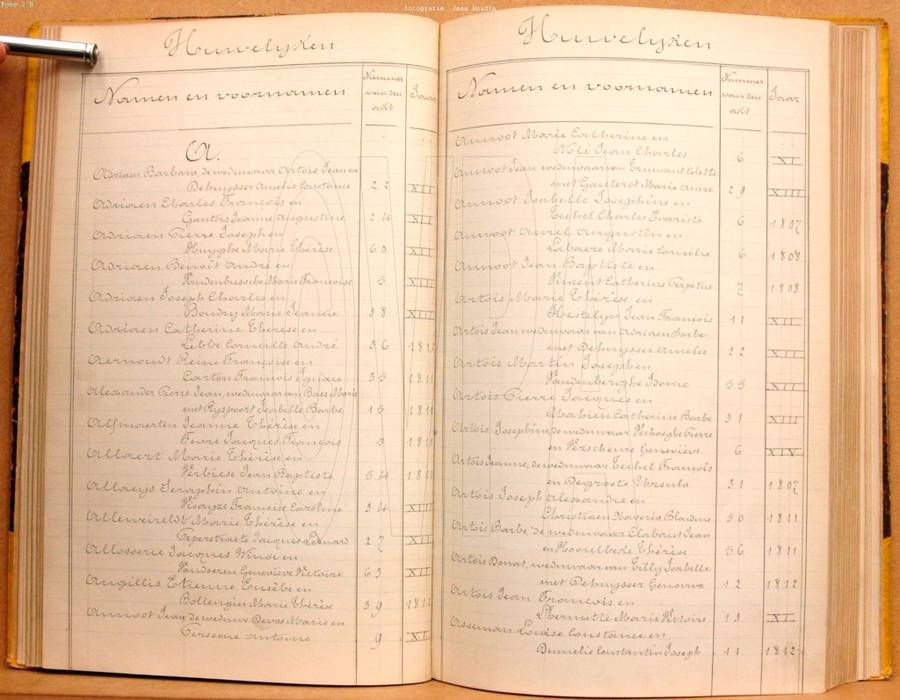 fotografie Jean Puidin
Huwelyken
Namen en voornamen
Nummer van den adt
Jaar
A.
Adriaen Barbara, de weduwaar Artois Jean en
Dehuysser Amelie Constance 22 XII
Adriaen Charles François en
Gantois Jeanne Augustine 24 XII
Adriaen Pierre Joseph en
Huyghe Marie Thérèse 60 XII
Adriaen Benoit André en
Vandenbussche Marie Françoise 5 XII
Adriaen Joseph Charles en
Boudry Marie Jeanne 38 XII
Adriaen Catherine Therese en
Lebbe Corneille André 36 181
Aernoudt Reine Françoise en
Carton François Ignace 35 1811
Alexander Pierre Jean, weduwaar van Baes Marie
met Ryspoort Isabelle Barbe 15 1811
Alfmaerten Jeanne Thérèse en
Fevre Jacques François 3 1811
Allaert Marie Thérèse en
Verbiese Jean Baptiste 54 181
Allaeys Seraphin Antoine en
Françoise Caroline 34 XIII
Alleweireldt Marie Thérèse en
Jacques Leonard 27 XII
Allosserie Jacques Winoc en
Vandseren Geneviève Victoire 63 XII
Angillis Etienne Eusèbe en
Bollengier Marie Thérèse 39 181
Annoot Jean, de weduwe Devos Marie en
Antoine 9 XI
Huwelyken
Namen en voornamen
Nummer van den adt
Jaar
Annoot Marie Catherine en
Nolé Jean Charles 6 XI
Annoot Jean weduwaar van Colette
met Gauterot Marie Anne 29 XIII
Annoot Isabelle Josephine en
Charles Evariste 6 1807
Annoot Aurel Augustin en
Labaere Marie Cornélie 6 1808
Annoot Jean Baptiste en
Vincent Catherine Perpetue 7 1808
Artois Marie Thérèse en
Hostelyn Jean François 11 XII
Artois Jean weduwaar van Adriaen Barbe
met Dehuysser Amelie 22 XII
Artois Martin Joseph en
Vandenberghe Isonie 55 XII
Artois Pierre Jacques en
Mahieu Catherine Barbe 31 XIII
Artois Josephine de weduwaar Verhaeghe Pierre
en Verscheure Geneviève 6 XIV
Artois Jeanne, de weduwaar François
en Degroote Ursula 31 1807
Artois Joseph Alexandre en
Christiaen Xaveria Blandine 30 1811
Artois Barbe, de weduwaar Clabaut Jean
en Noorelbeke Thérèse 56 1811
Artois Donat, weduwaar van Gilly Isabelle
met Dehuysser 12 1812
Artois Jean François en
Lhermitte Marie Victoire 13 XI
Asseman Louise Constance en
Dumelie Constantin Joseph 11 1812